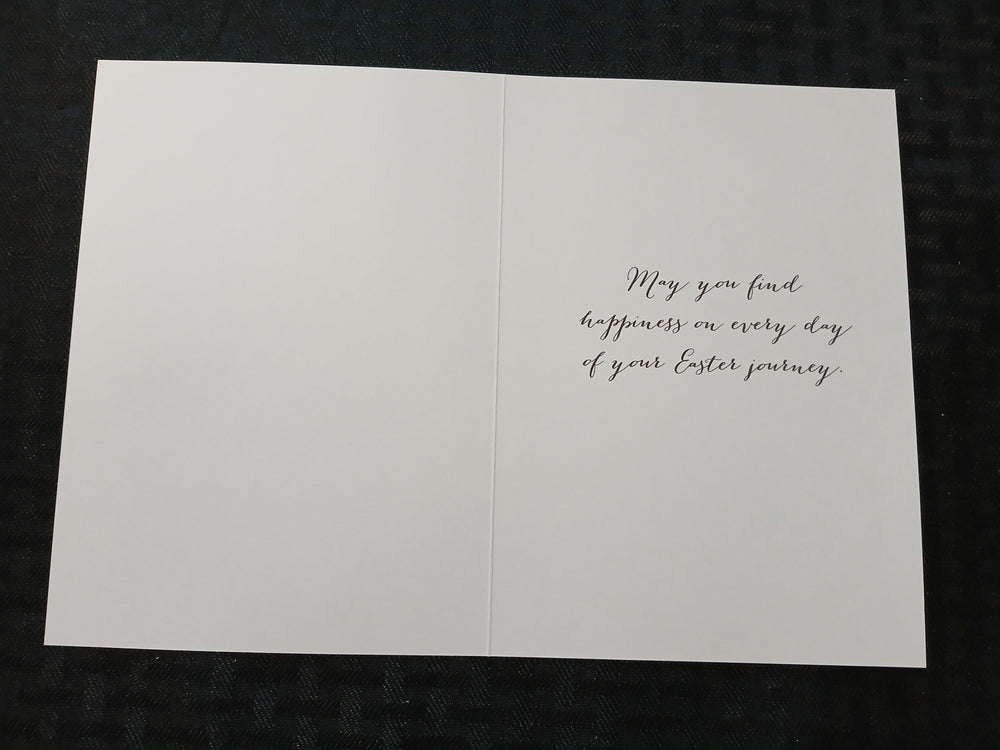 May you find
happiness on every day
of your Easter journey.